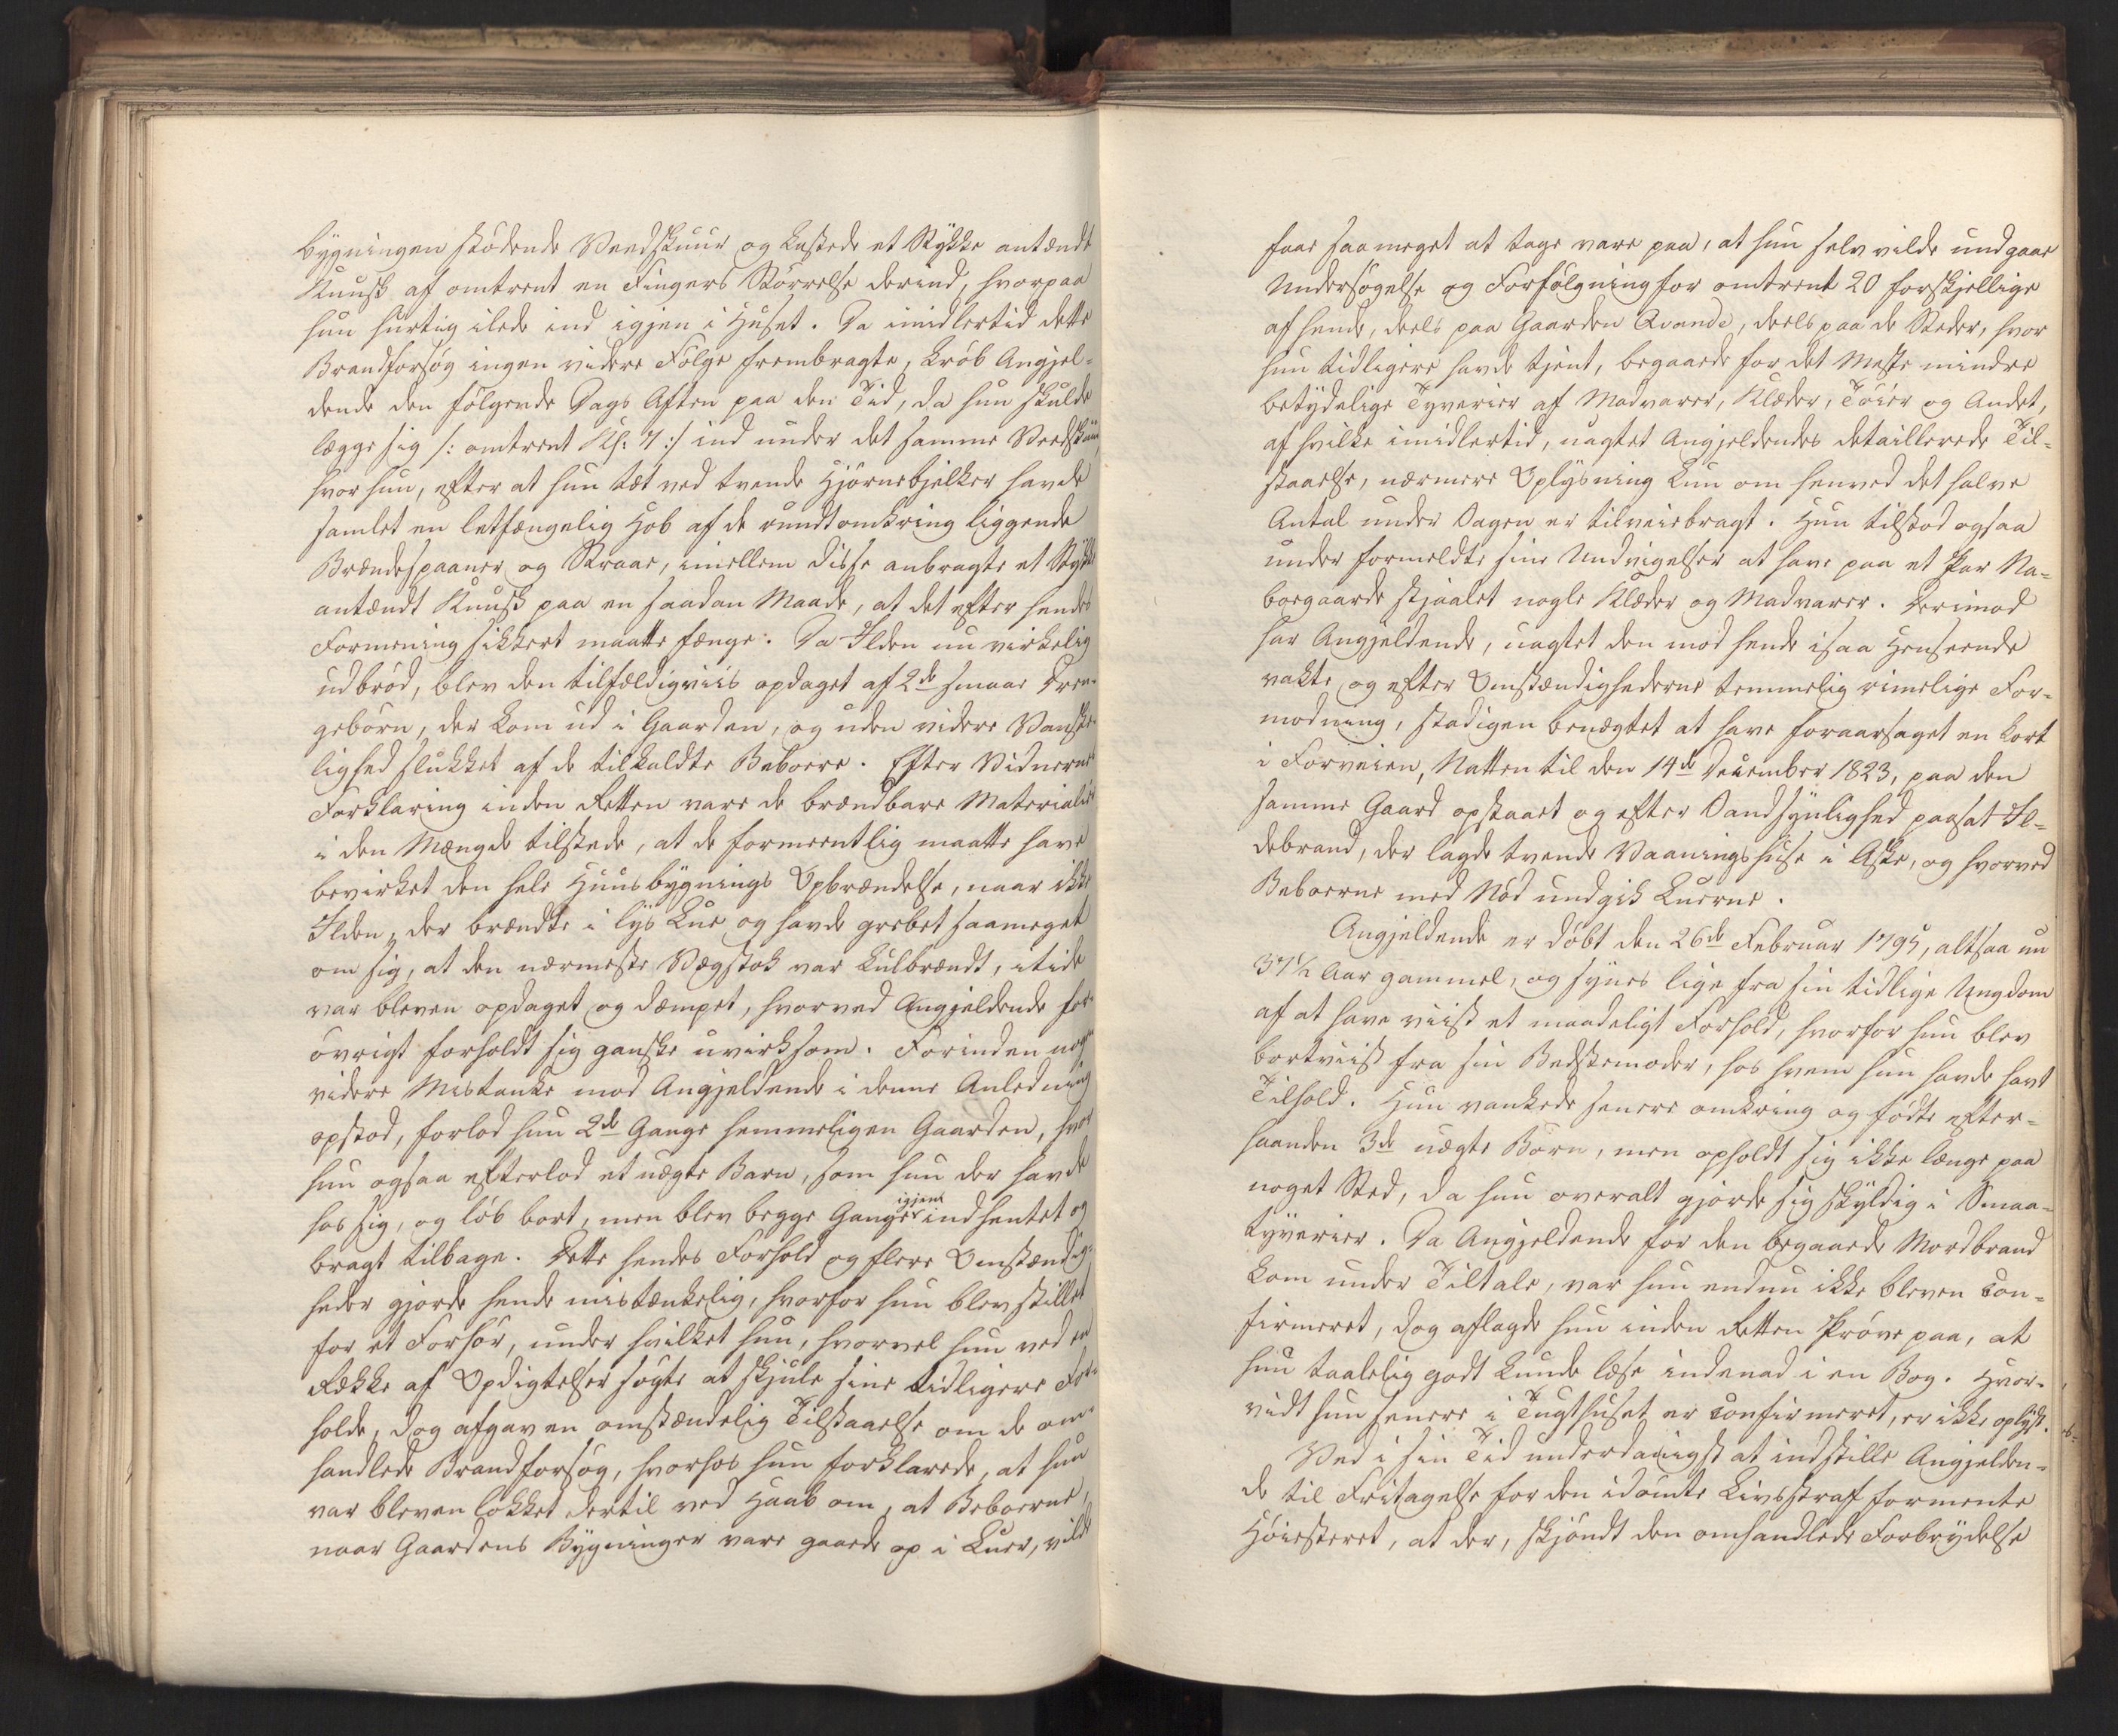 bygningen stødende Vandskuur og kastede et Stykke antændt
Knusk af omtrent en Fingers Størrelse derind, hvorpaa
hun hurtig ilede ind igjen i Huset. Da imidlertid dette
Brandforsøg ingen videre Følge frembragte, krøb Angjel-
dende den følgende Dags Aften paa den Tid, da hun skulde
lægge sig /: omtrent Kl: 7 :/ ind under det samme
hvor hun, efter at hun tæt ved tvende Hjørnebjelker havde
samlet en letfængelig Hob af de rundtomkring liggende
Brændespaaner og Straae, imellem disse anbragte et Stykke
antændt Knusk paa en saadan Maade, at det efter hendes
Formening sikkert maatte fænge. Da Ilden nu virkelig
udbrød, blev den tilfældigviis opdaget af 2de smaae Dren-
gebørn, der kom ud i Gaarden, og uden videre Vanske-
lighed slukket af de tilkaldte Beboere. Efter Vidnernes
Forklaring inden Retten vare de brændbare Materialier
i den Mængde tilstede, at de formeentlig maatte have
bevirket den hele Huusbygnings Opbrændelse, naar ikke
Ilden, der brændte i lys Lue og havde grebet saameget
om sig, at den nærmeste Vægstok var kulbrændt, itide
var bleven opdaget og dæmpet, hvorved Angjeldende for-
øvrigt forholdt sig ganske uvirksom. Forinden nogen
videre Mistanke mod Angjeldende i denne Anledning
opstod, forlod hun 2de Gange hemmeligen Gaarden, hvor
hun ogsaa efterlod et uægte Barn, som hun der havde
hos sig, og løb bort, men blev begge Gange igjen indhentet og
bragt tilbage. Dette hendes Forhold og flere Omstændig-
heder gjorde hende mistænkelig, hvorfor hun blev stillet
for et Forhør, under hvilket hun, hvorvel hun ved en
Række af Opdigtelser søgte at skjule sine tidligere For-
holde, dog afgav en omstændelig Tilstaaelse om de om-
handlede Brandforsøg, hvorhos hun forklarede, at hun
var bleven lokket dertil ved Haab om, at Beboerne,
naar Gaardens Bygninger vare gaaede op i Luer, vilde
faae saa meget at tage vare paa, at hun selv vilde undgaae
Undersøgelse og Forfølgning for omtrent 20 forskjellige
af hende, deels paa Gaarden Qvande, deels paa de Steder, hvor
hun tidligere havde tjent, begaaede for det Meste mindre
betydelige Tyverier af Madvarer, Klæder, Tøier og Andet,
af hvilke imidlertid, uagtet Angjeldendes detaillerede Til-
staaelse, nærmere Oplysning kun om henved det halve
Antal under Sagen er tilveiebragt. Hun tilstod ogsaa
under formeldte sine Undvigelser at have paa et Par Na-
boegaarde stjaalet nogle Klæder og Madvarer. Derimod
har Angjeldende, uagtet den mod hende i saa Henseende
vakte og efter Omstændighederne temmelig rimelige For-
modning, stadigen benægtet at have foraarsaget en kort
i Forveien, Natten til den 14de December 1823, paa den
samme Gaard opstaaet og efter Sandsynlighed paasat Il-
debrand, der lagde tvende Vaaningshuse i Aske, og hvorved
Beboerne med Nød undgik Luerne.
Angjeldende er døbt den 26de Februar 1795, altsaa nu
37½ Aar gammel, og synes lige fra sin tidlige Ungdom
af at have viist et maadeligt Forhold, hvorfor hun blev
bortviist fra sin Bedstemoder, hos hvem hun havde havt
Tilhold. Hun vankede senere omkring og fødte efter-
haanden 3de uægte Børn, men opholdt sig ikke længe paa
noget Sted, da hun overalt gjorde sig skyldig i Smaa-
tyverier. Da Angjeldende for den begaaede Mordbrand
kom under Tiltale, var hun endnu ikke bleven con-
firmeret, dog aflagde hun inden Retten Prøve paa, at
hun taalelig godt kunde læse indenad i en Bog. Hvor-
vidt hun senere i Tugthuset er confirmeret, er ikke oplyst.
Ved i sin Tid underdanigst at indstille Angjelden-
de til Fritagelse for den idømte Livsstraf formente
Høiesteret, at der, skjøndt den omhandlede Forbrydelse